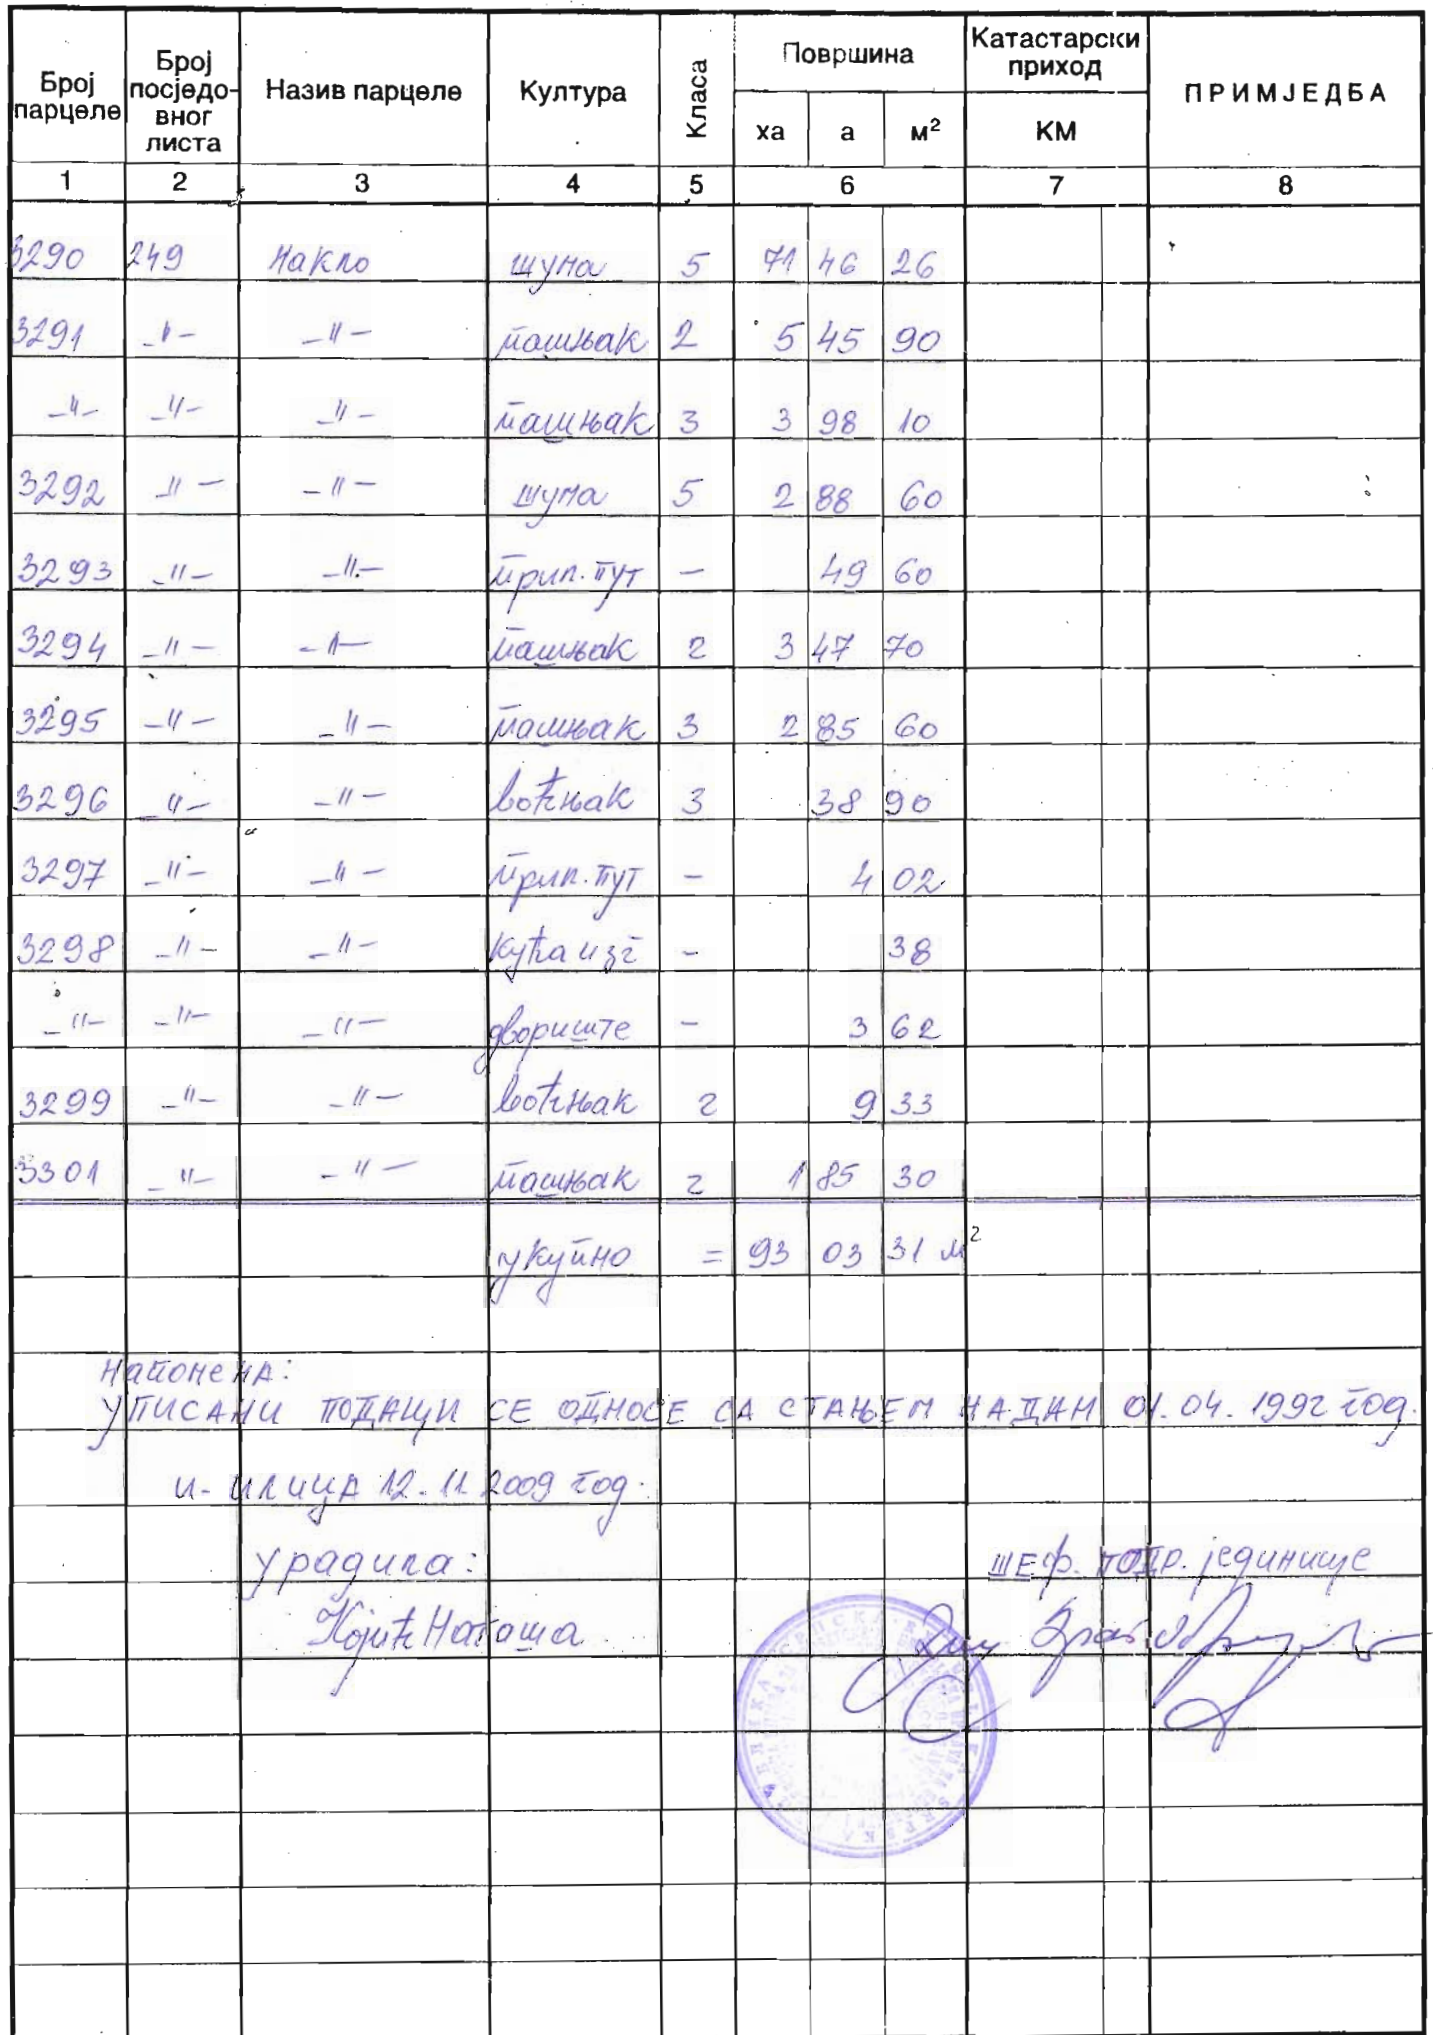 Број парцеле | Број посједо-вног листа | Назив парцеле | Култура | Класа | Површина ха а м² | Катастарски приход КМ | ПРИМЈЕДБА
1 2 3 4 5 6 7 8
3290 249 Накло шума 5 71 46 26
3291 -"- -"- пашњак 2 5 45 90
-"- -"- -"- пашњак 3 3 98 10
3292 -"- -"- шума 5 2 88 60
3293 -"- -"- прил. пут - 49 60
3294 -"- -"- пашњак 2 3 47 70
3295 -"- -"- пашњак 3 2 85 60
3296 -"- -"- воћњак 3 38 90
3297 -"- -"- прил. пут - 4 02
3298 -"- -"- кућа и зг - 38
-"- -"- -"- двориште - 3 62
3299 -"- -"- воћњак 2 9 33
3301 -"- -"- пашњак 2 1 85 30
укупно = 93 03 31 м²
Напомена:
УПИСАНИ ПОДАЦИ СЕ ОДНОСЕ СА СТАЊЕМ НА ДАН 01.04.1992 год.
И-Илица 12.11.2009 год.
Урадила:
ШЕФ. ПОДР. јединице
Којић Наташа